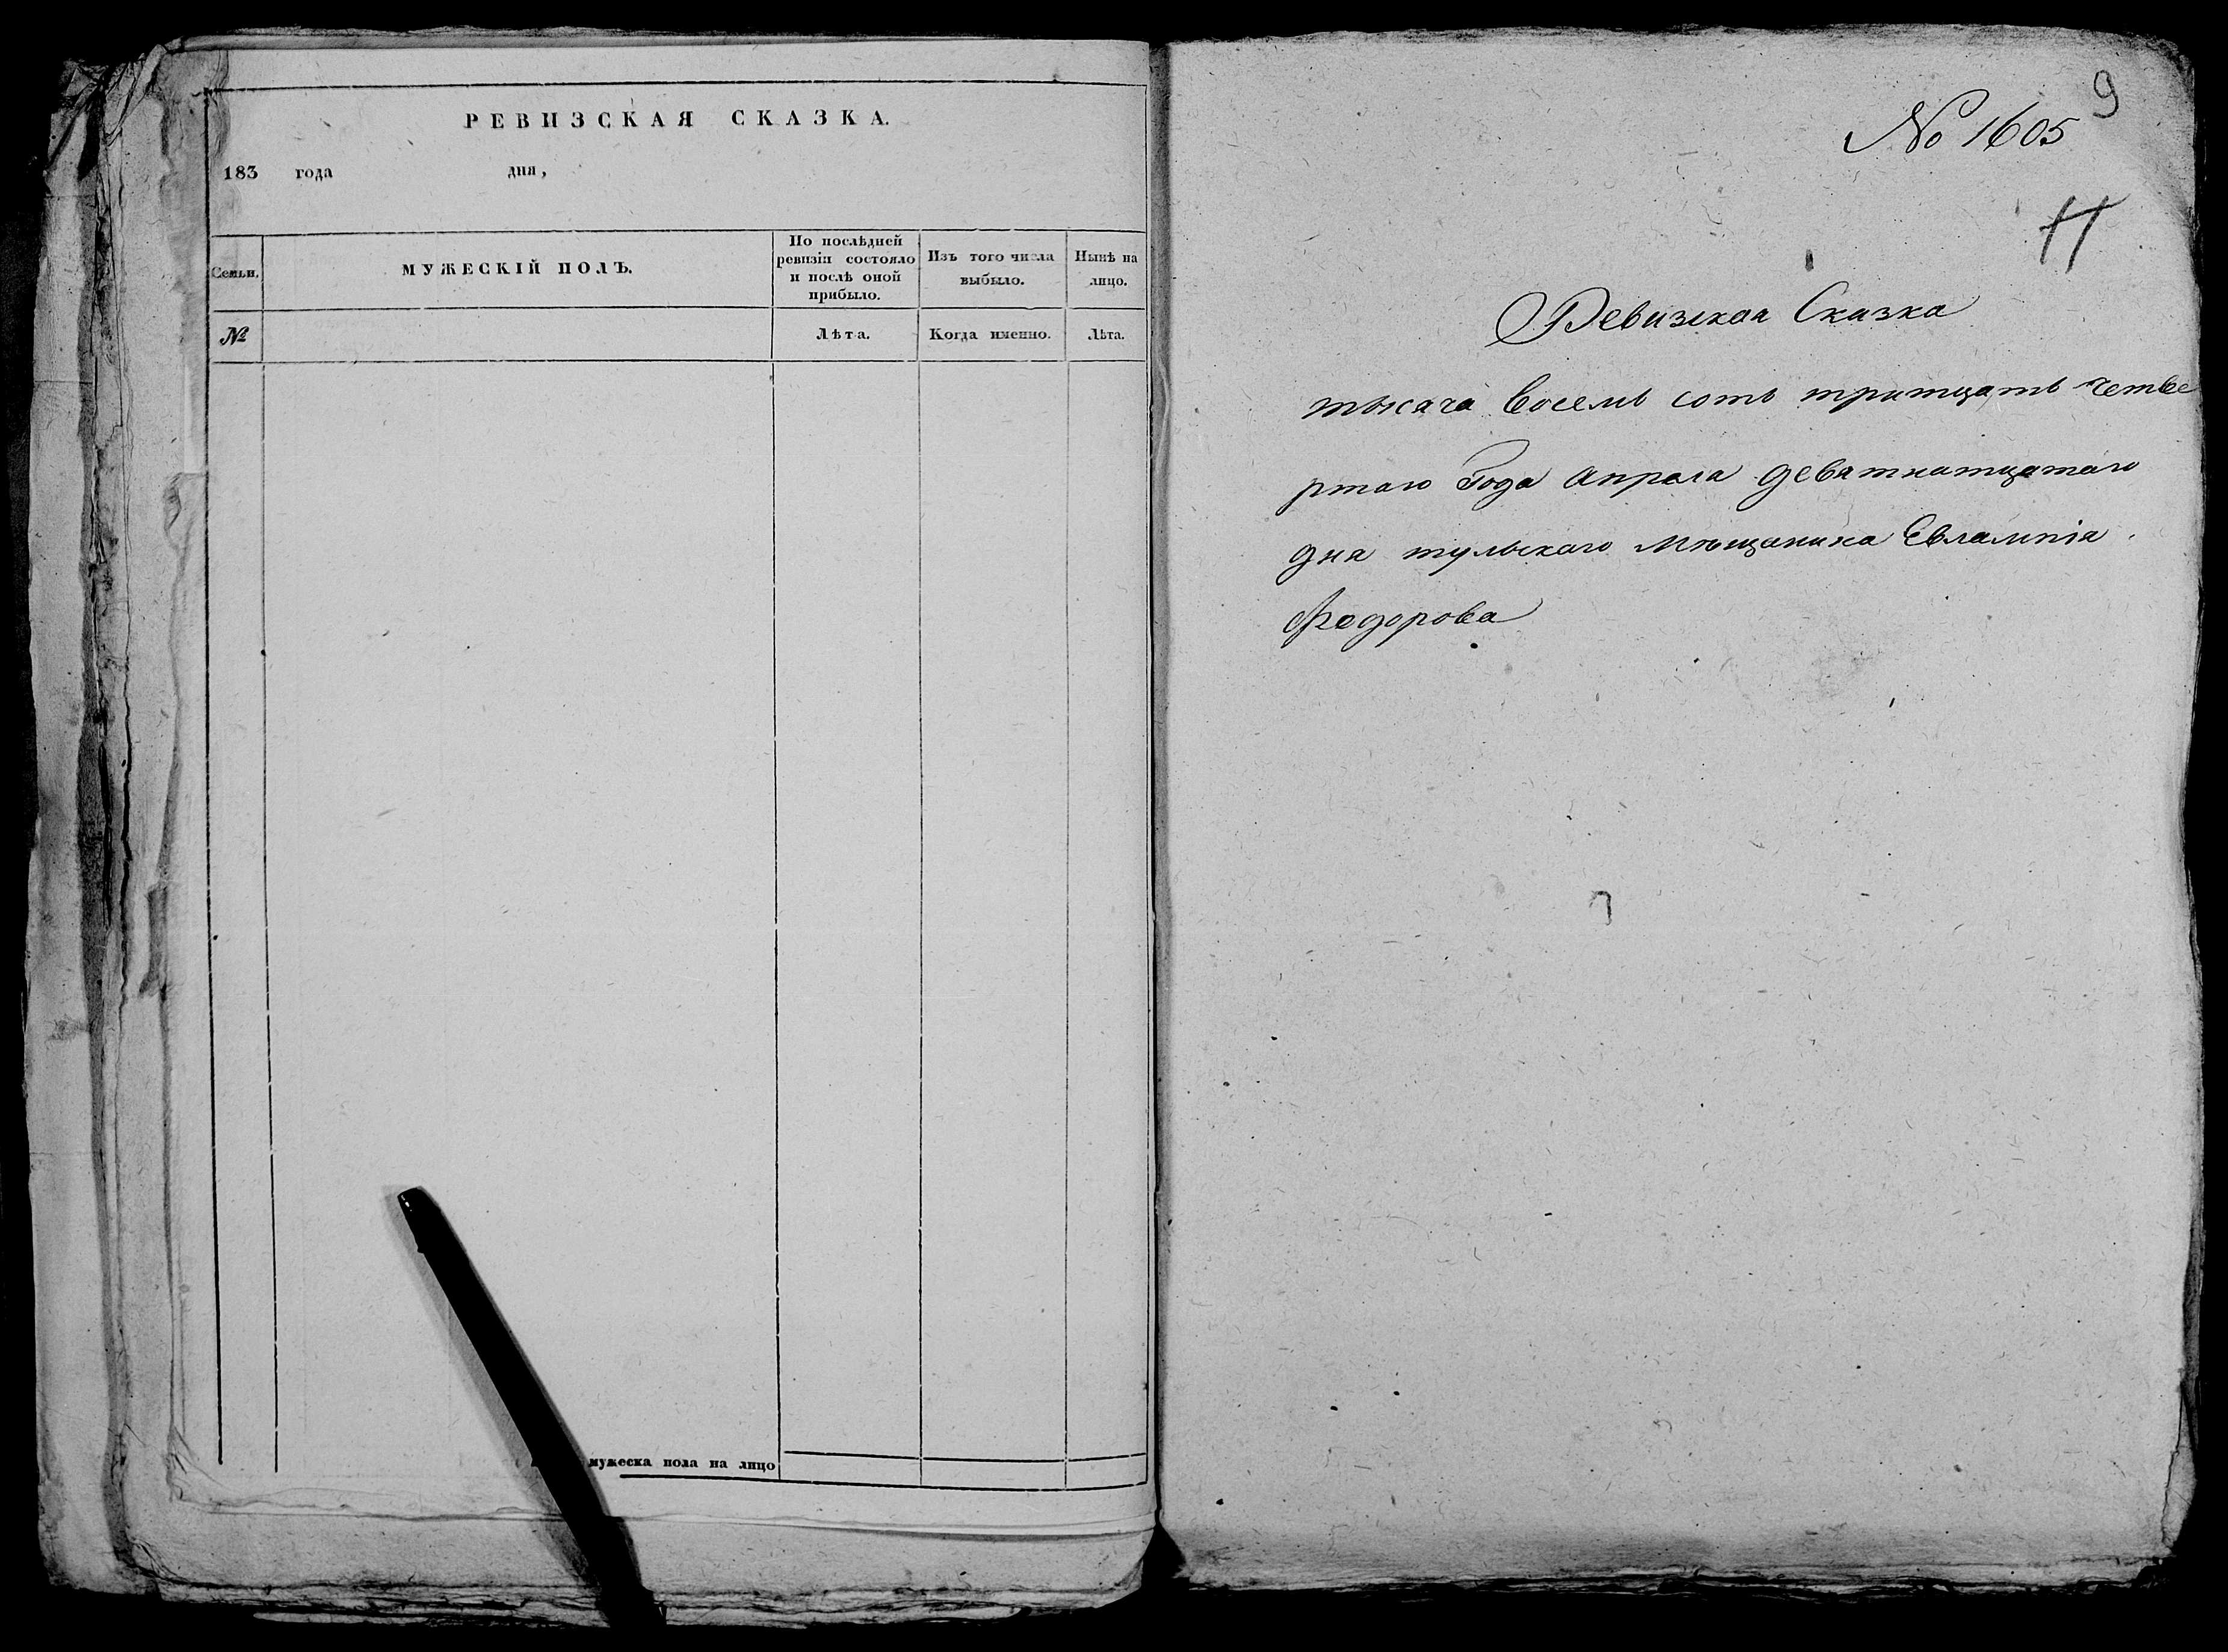 РЕВИЗСКАЯ СКАЗКА.
183 года дня,
Семьи.
МУЖЕСКІЙ ПОЛЪ.
По послѣдней ревизіи состояло и послѣ оной прибыло.
Изъ того числа выбыло.
Нынѣ на лицо.
№
Лѣта.
Когда именно.
Лѣта.
мужеска пола на лицо
9
№ 1605
11
Ревизская Сказка
тысяча восемь сотъ тритцать четве
ртаго Года апреля девятнатцатаго
дня тульскаго мѣщанина Евлампія
Федорова